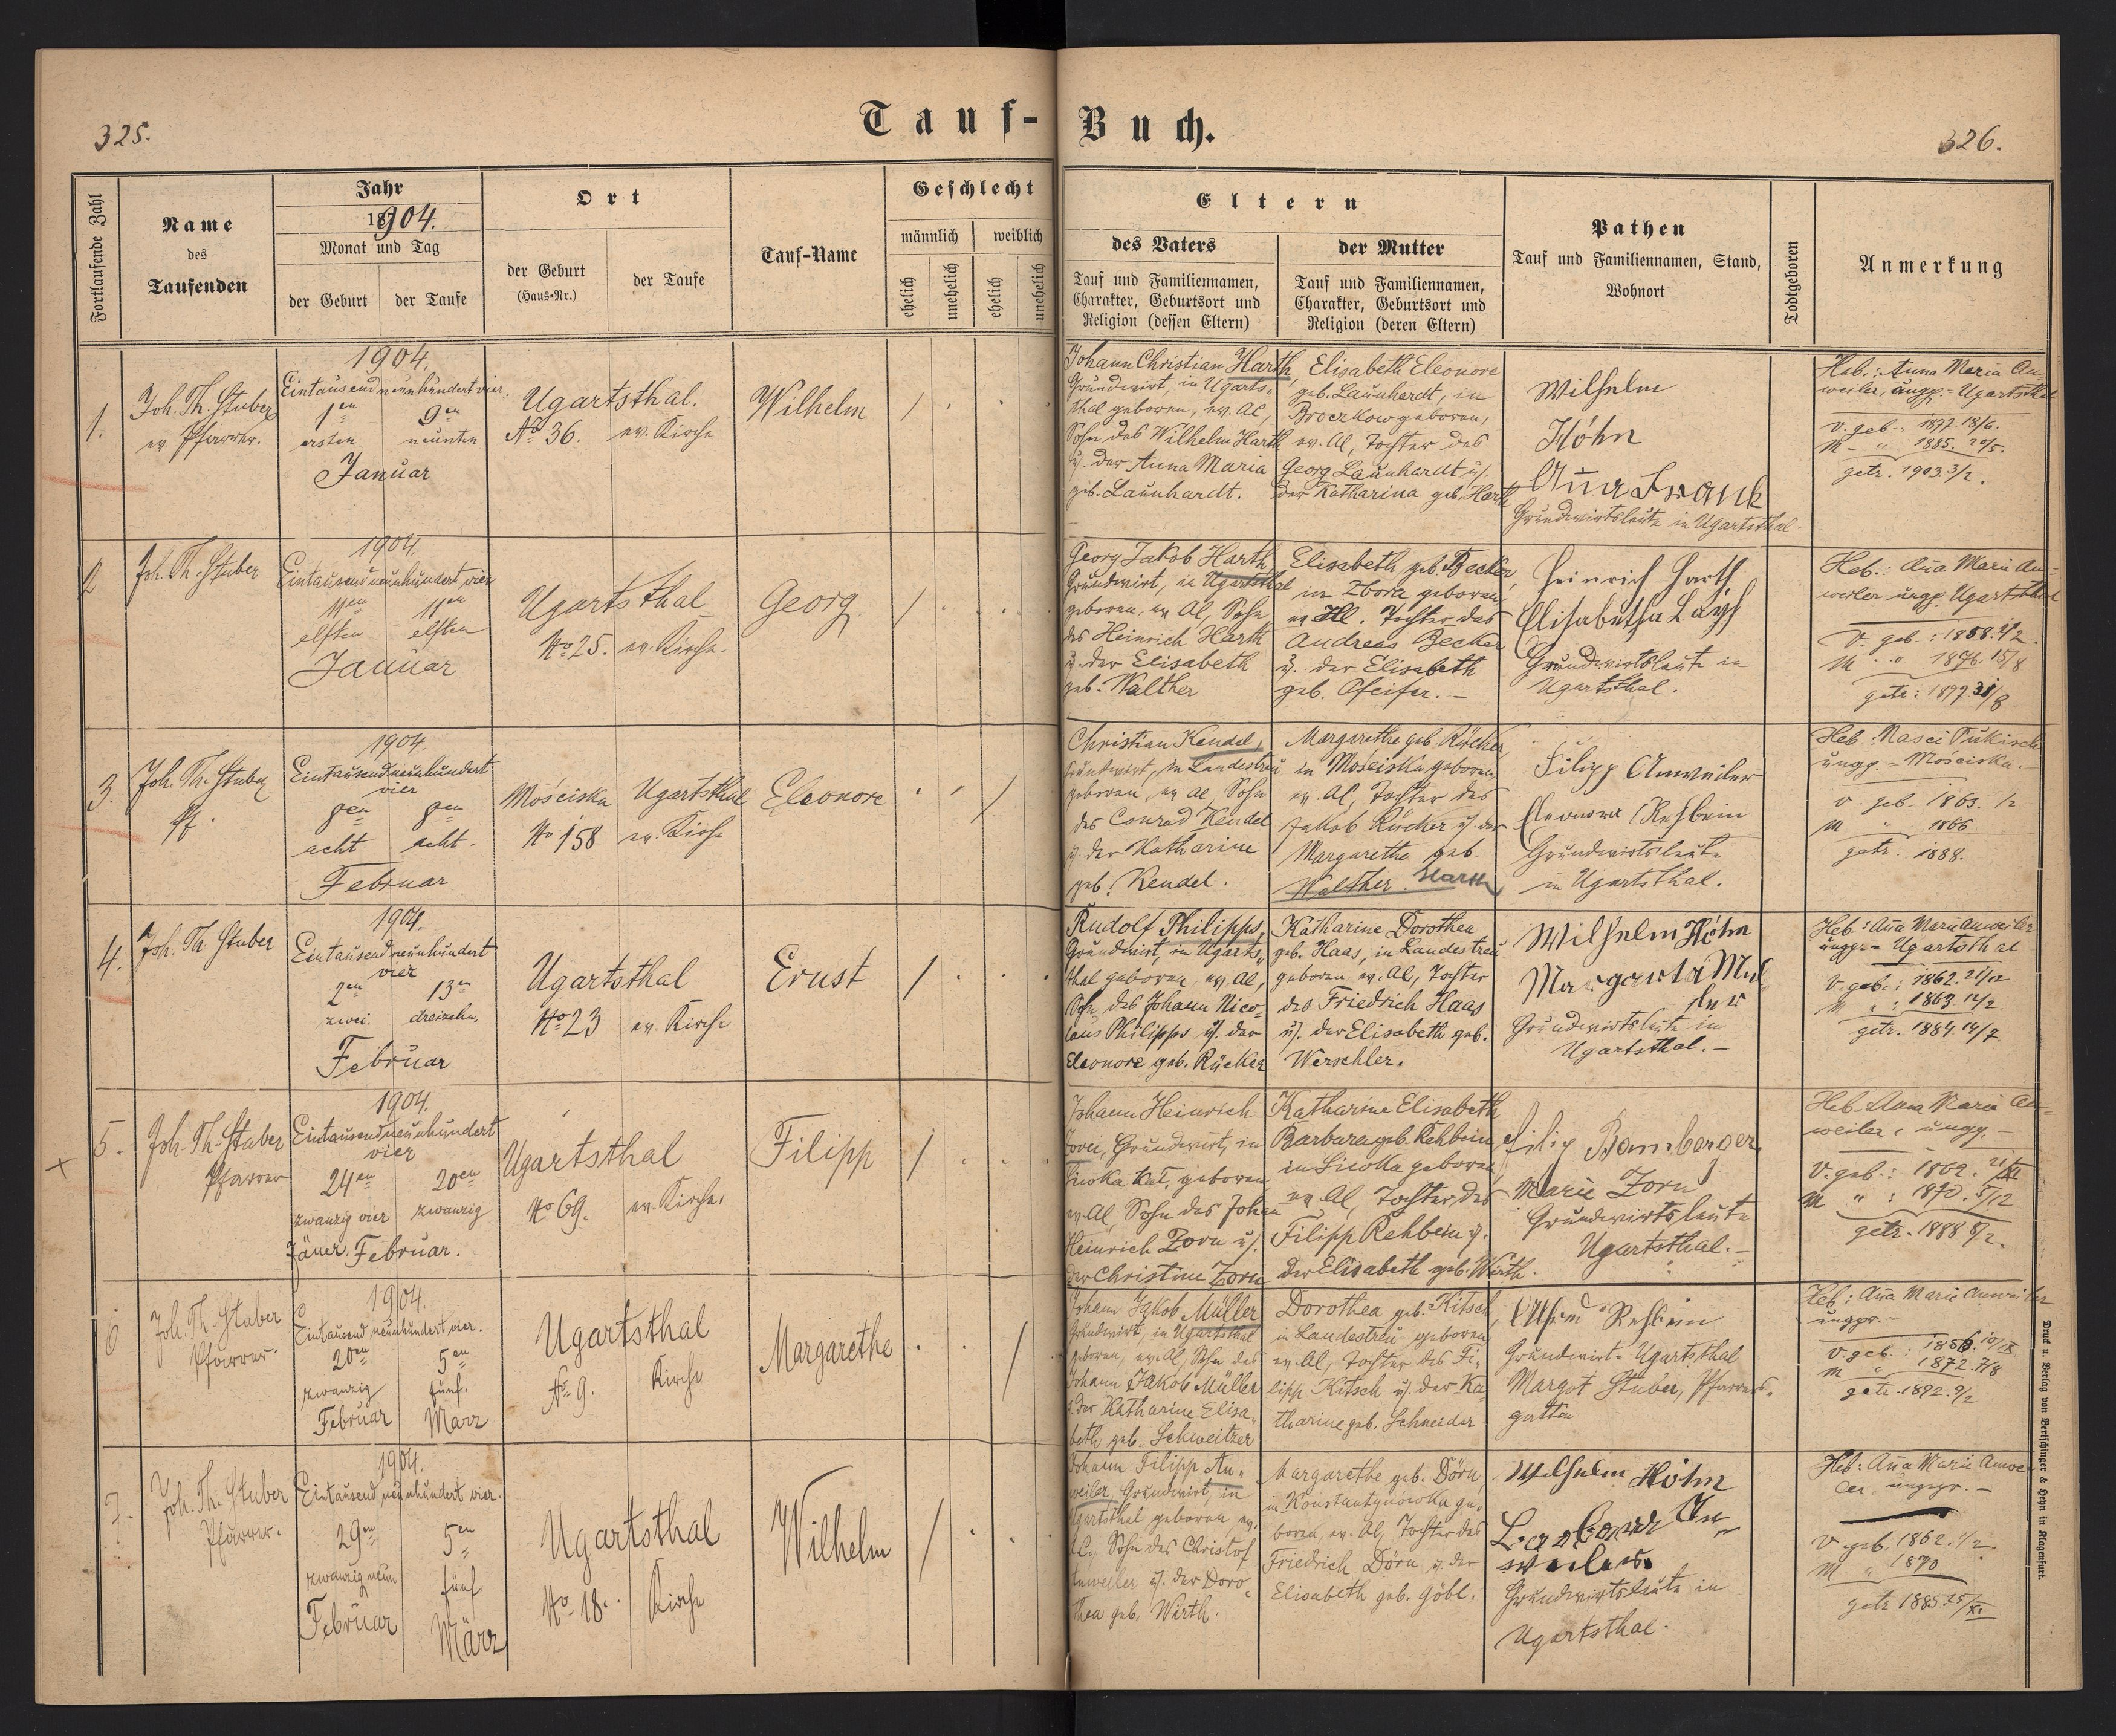 325.
Tauf-Buch.
326.
Fortlaufende Zahl
Name
des
Taufenden
Jahr
18904.
Monat und Tag
der Geburt
der Taufe
Ort
der Geburt
(Haus-Nr.)
der Taufe
Tauf-Name
Geschlecht
männlich
weiblich
ehelich
unehelich
ehelich
unehelich
Eltern
des Vaters
Tauf und Familiennamen,
Charakter, Geburtsort und
Religion (dessen Eltern)
der Mutter
Tauf und Familiennamen,
Charakter, Geburtsort und
Religion (deren Eltern)
Pathen
Tauf und Familiennamen, Stand,
Wohnort
Todtgeboren
Anmerkung
1.
Joh. Th. Stuber
ev. Pfarrer.
1904.
Eintausendneunhundert vier.
1en 9en
ersten neunten
Januar
Ugartsthal.
No 36. ev. Kirche
Wilhelm
Johann Christian Harth,
Grundwirt, in Ugarts-
thal geboren, ev. Al,
Sohn des Wilhelm Harth
u. der Anna Maria
geb. Launhardt.
Elisabeth Eleonore
geb. Launhardt, in
Broczkow geboren,
ev. Al, Tochter des
Georg Launhardt u.
der Katharina geb. Harth
Wilhelm
Höhn
Anna Frank
Grundwirtsleute in Ugartsthal.
Heb.: Anna Maria An-
weiler, ungp. - Ugartsthal
V. geb. 1877 18/6.
M - " 1885. 20/5.
getr. 1903. 3/2.
2
Joh. Th. Stuber
1904.
Eintausendneunhundert vier
11en 11en
elften elften
Januar
Ugartsthal
No 25. ev. Kirche.
Georg
Georg Jakob Harth,
Grundwirt, in Ugartsthal
geboren, ev Al, Sohn
des Heinrich Harth
u. der Elisabeth
geb. Walther
Elisabeth geb. Becker,
in Zbora geboren,
ev. Al. Tochter des
Andreas Becker
u. der Elisabeth
geb. Pfeifer. -
Heinrich Harth
Elisabetha
Grundwirtsleute in
Ugartsthal.
Heb.: Ana Maria An-
weiler ungp. Ugartsthal
V. geb.: 1858.
M " 1876. 15/8
getr: 1897 31/8
3.
Joh. Th. Stuber
Pf.
1904.
Eintausendneunhundert
vier
8en 8en
acht acht.
Februar
Mosciska Ugartsthal
No 158 ev. Kirche
Eleonore
Christian Kendel,
Grundwirt, in Landestreu
geboren, ev Al, Sohn
des Conrad Kendel
u. der Katharine
geb. Kendel.
Margarethe geb. Rücker
in Mosciska geboren
ev. Al, Tochter des
Jakob Rücker u. der
Margarethe geb.
Walther. Harth
Filipp Anweiler
Eleonora Rehbein
Grundwirtsleute
in Ugartsthal.
ungp. - Mosciska.
V. geb. 1863. 1/2
M " 1866
getr. 1888.
4.
Joh. Th. Stuber
1904.
Eintausend neunhundert
vier
2en 13en
zwei. dreizehn,
Februar
Ugartsthal
No 23 ev. Kirche
Ernst
Rudolf Philipps,
Grundwirt, in Ugarts-
thal geboren, ev. Al,
Sohn des Johann Nico-
laus Philipps u. der
Eleonore geb. Rücker
Katharine Dorothea
geb. Haas, in Landestreu
geboren ev. Al, Tochter
des Friedrich Haas
u. der Elisabeth geb.
Werschler.
Wilhelm Höhn
Margareta Mül
ler
Grundwirtsleute in
Ugartsthal. -
Heb.: Ana Maria Anweiler
ungpr - Ugartsthal
V. geb.: 1862. 21/12
M " : 1863. 12/2
getr. 1884. 14/7
5.
Joh. Th. Stuber
Pfarrer
1904.
Eintausendneunhundert
vier
24en 20en
zwanzig vier zwanzig
Jäner. Februar.
Ugartsthal
No 69. ev. Kirche.
Filipp
Johann Heinrich
Zorn, Grundwirt, in
Siwka Kal, geboren
ev. Al, Sohn des Johann
Heinrich Zorn u.
der Christine Zorn
Katharine Elisabeth
Barbara geb. Rehbein,
in Siwka geboren,
ev. Al, Tochter des
Filipp Rehbein u.
der Elisabeth geb. Wirth.
Filip Bamberger
Marie Zorn
Grundwirtsleute
Ugartsthal. -
Heb. Anna Maria An-
weiler, ungp. -
V. geb.: 1862. 21/XI
M " : 1870. 5/12
getr. 1888 5/2.
6
Joh. Th. Stuber
Pfarrer.
1904.
Eintausend neunhundert vier.
20en 5en
zwanzig fünf.
Februar März
Ugartsthal
No 9. Kirche
Margarethe
Johann Jakob Müller
Grundwirt, in Ugartsthal
geboren, ev. Al, Sohn des
Johann Jakob Müller
u. der Katharine Elisa-
beth geb. Schweitzer
Dorothea geb. Kitsch,
in Landestreu geboren,
ev. Al, Tochter des Fi-
lipp Kitsch u. der Ka
tharine geb. Schneider
Rehbein
Grundwirt - Ugartsthal
Margot Stuber, Pfarrers-
gattin
Heb.: Ana Maria Anweiler
ungpr. -
V. geb.: 1856. 10/IX
M " 1872. 7/8
getr. 1892. 9/2
7.
Joh. Th. Stuber
Pfarrer.
1904.
Eintausend neunhundert vier.
29en 5en
zwanzig neun fünf
Februar März
Ugartsthal
No 18. Kirche
Wilhelm
Johann Filipp An-
weiler, Grundwirt, in
Ugartsthal geboren, ev.
Al, Sohn des Christof
Anweiler u. der Doro-
thea geb. Wirth.
Margarethe geb. Dörn,
in Konstantynowka ge-
boren, ev. Al, Tochter des
Friedrich Dörn u. der
Elisabeth geb. Göbl.
Wilhelm Höhn
Barbara An
weiler
Grundwirtsleute in
Ugartsthal.
Heb: Ana Maria Anwei
ler, ungpr. -
V. geb. 1862. 1/2.
M " 1870
getr 1885 25/XI
Druck u. Verlag von Bertschinger & Heyn in Klagenfurt.